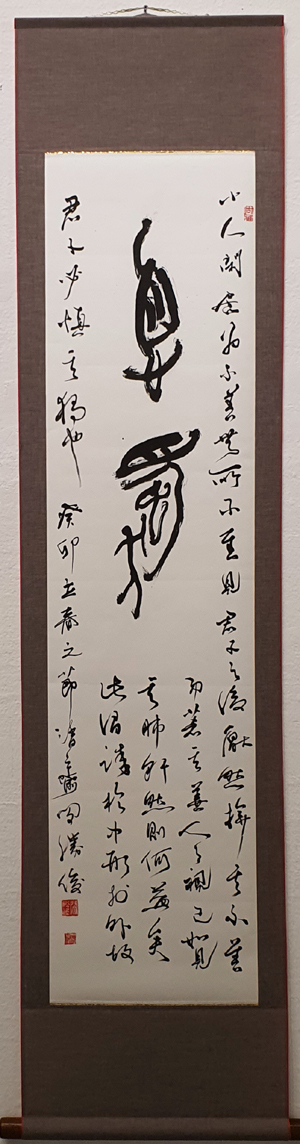 慎獨
小人閒居為不善無所不至見君子而後厭然揜其不善
而著其善人之視己如見
其肺肝然則何益矣
此謂誠於中形於外故
君子必慎其獨也 癸卯立春之節 勝俊